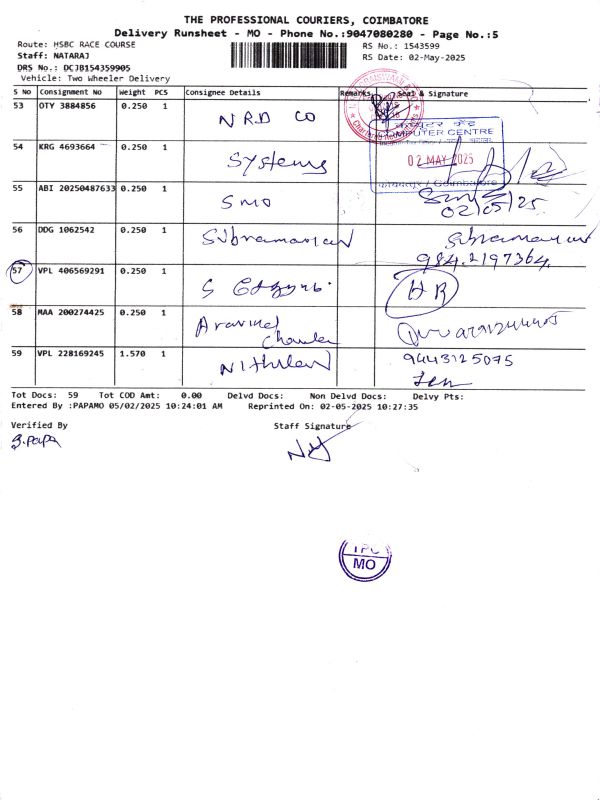 THE PROFESSIONAL COURIERS, COIMBATORE
Delivery Runsheet - MO - Phone No.:9047080280 - Page No.:5
Route: HSBC RACE COURSE
RS No.: 1543599
Staff: NATARAJ
RS Date: 02-May-2025
DRS No.: DCJB154359905
Vehicle: Two Wheeler Delivery
S No Consignment No Weight PCS Consignee Details Remarks Seal & Signature
53 OTY 3884856 0.250 1 N.R.D CO
54 KRG 4693664 0.250 1 Systems
COMPUTER CENTRE
02 MAY 2025
कोयम्बत्तूर / Coimbatore
55 ABI 20250487633 0.250 1 SMO
02/05/25
56 DDG 1062542 0.250 1 Subramanian Subramanian
984.2197364.
57 VPL 406569291 0.250 1 S HR
58 MAA 200274425 0.250 1 Aravind
59 VPL 228169245 1.570 1 9443125075
Tot Docs: 59 Tot COD Amt: 0.00 Delvd Docs: Non Delvd Docs: Delvy Pts:
Entered By :PAPAMO 05/02/2025 10:24:01 AM Reprinted On: 02-05-2025 10:27:35
Verified By Staff Signature
B.Papa
TPC
MO